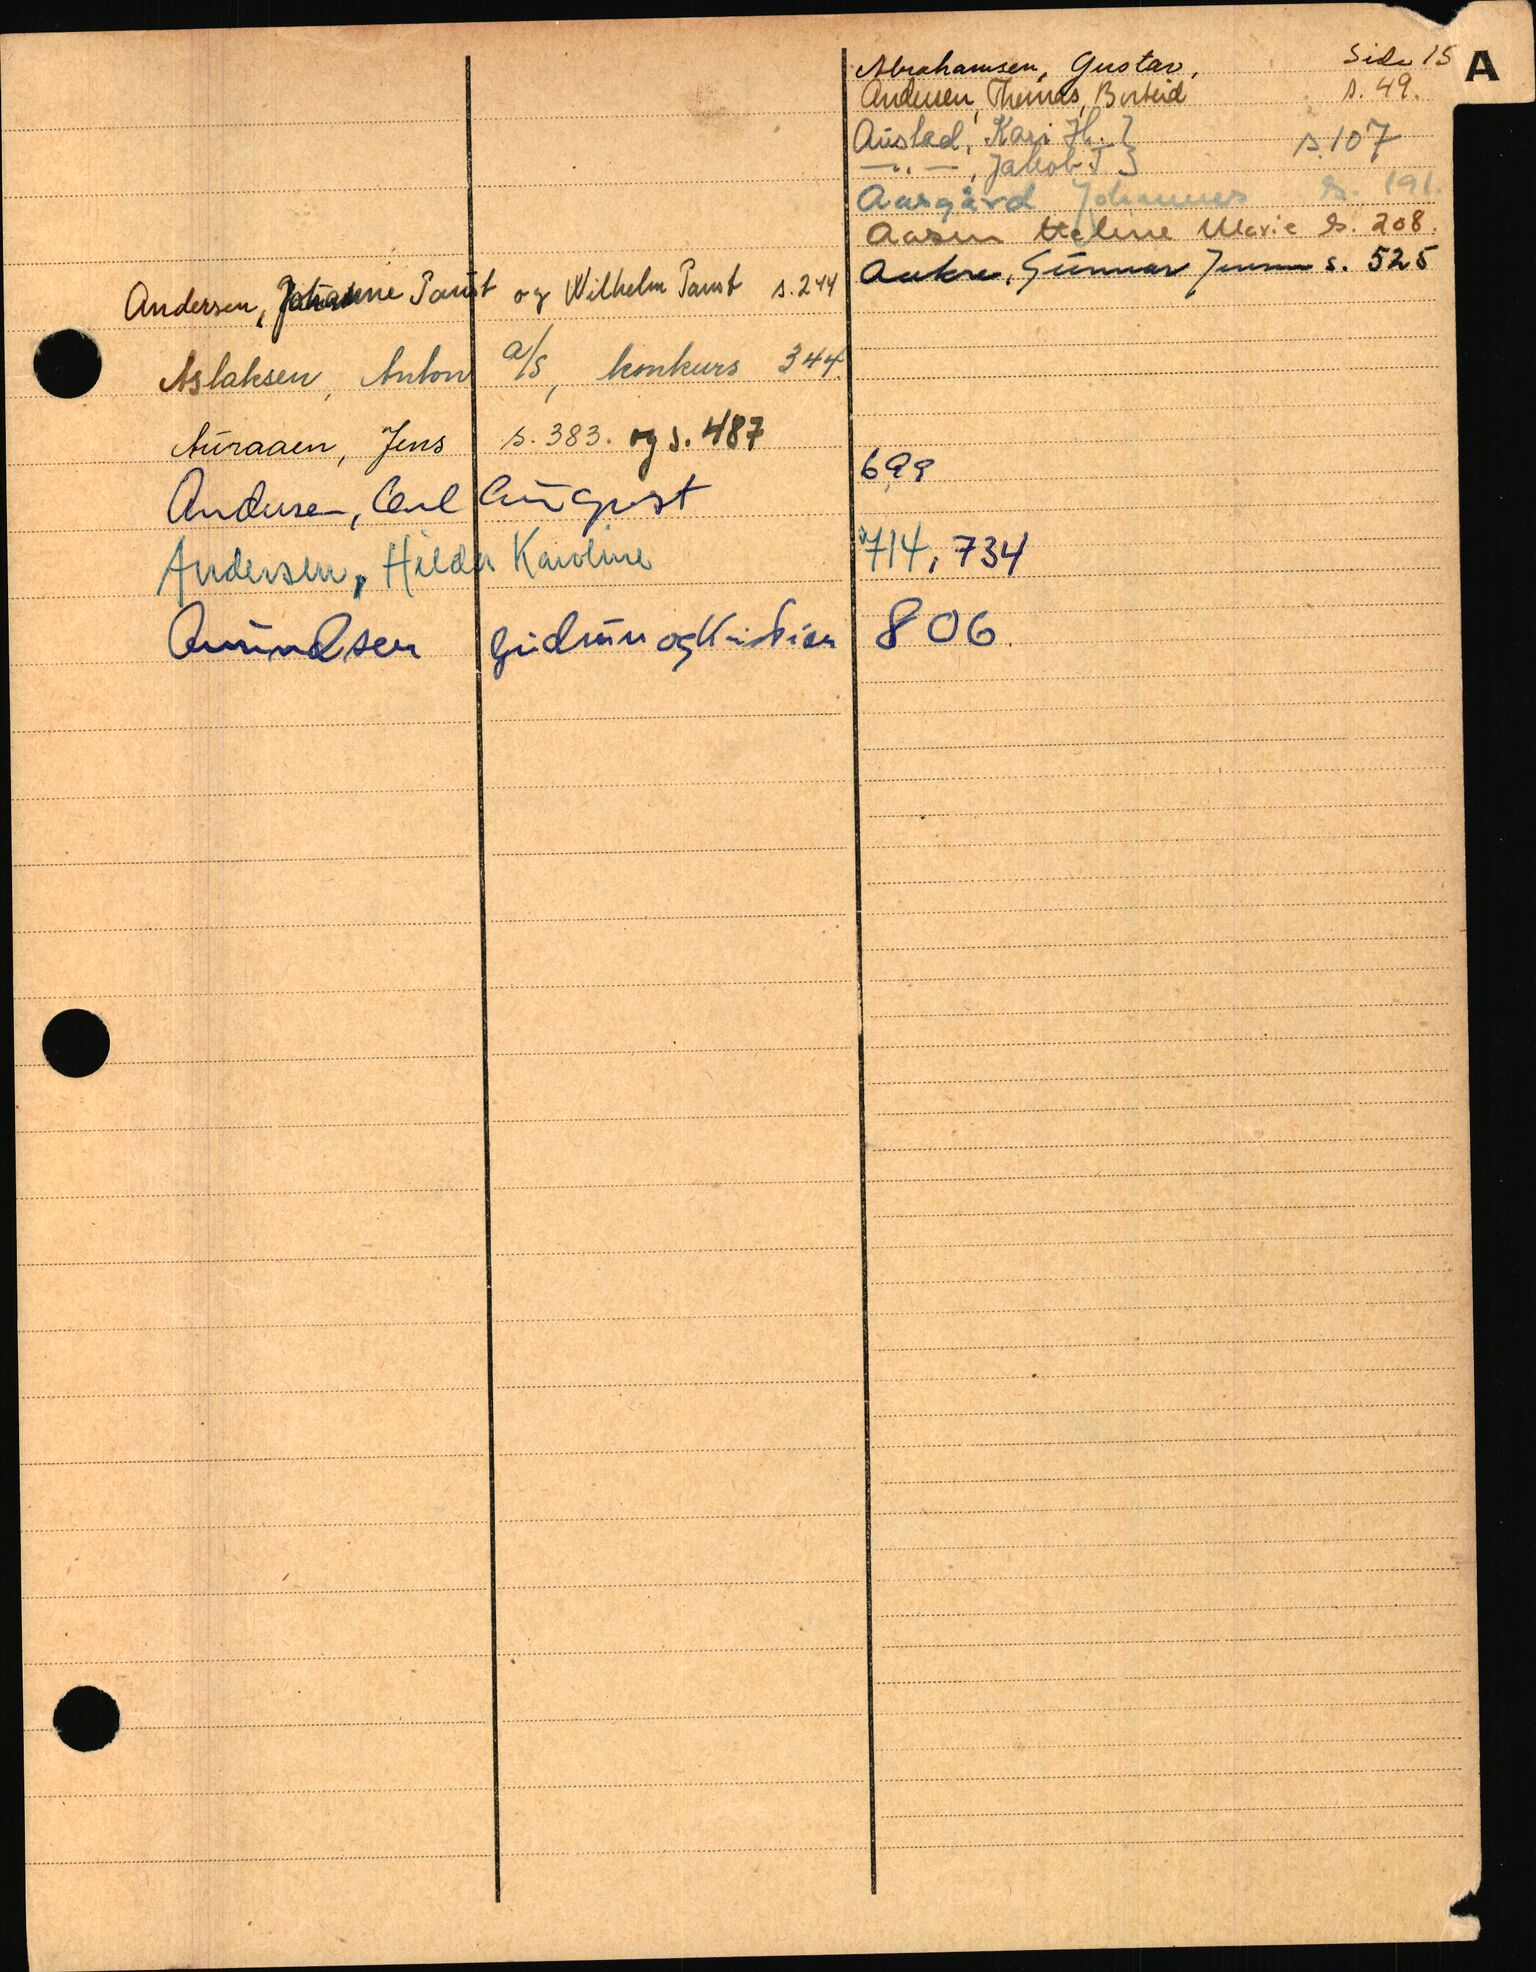 A
Abrahamsen, Gustav, Side 15
Andersen, Thomas, s. 49.
Austad, Kari H. } s. 107
—..—, Jakob T }
Aasgård Johannes s. 191.
Aasen Helene Marie s. 208.
Aakre, Gunnar s. 525
Andersen, Johanne Paust og Wilhelm Paust s. 244
Aslaksen, Anton a/s, konkurs 344.
Auraaen, Jens s. 383. og s. 487
Andersen, Carl August 699
Andersen, Hilda Karoline 714, 734
Amundsen Gudrun og Kristian 806.